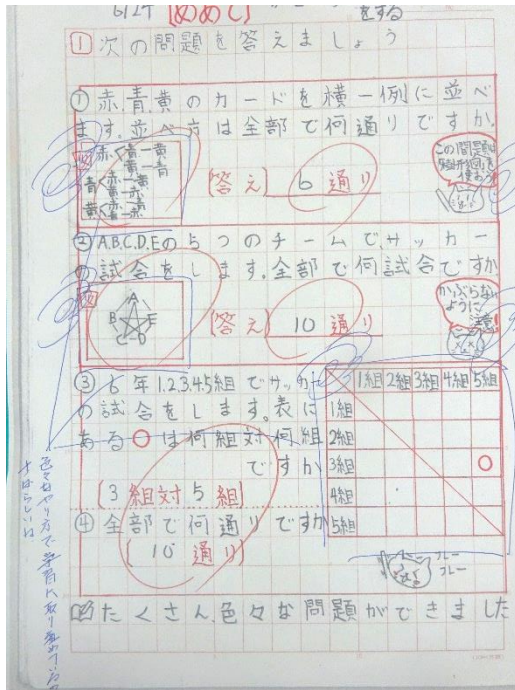 6/24 【めあて】
をする
1 次の問題を答えましょう
① 赤.青.黄のカードを横一例に並べ
ます。並べ方は全部で何通りですか。
図
赤 青ー黄
黄ー青
青 赤ー黄
黄ー赤
黄 赤ー青
青ー赤
[答え] 6 通り
この問題は
② A.B.C.D.Eの5つのチームで、サッカー
の試合をします。全部で何試合ですか
図
A
B E
C D
[答え] 10 通り
かぶらない
ように
注意!
③ 6年1.2.3.4.5組でサッカー
の試合をします。表に
ある○は何組対何組
ですか
[3組対5組]
④ 全部で何通りですか
(10 通り)
1組 2組 3組 4組 5組
1組
2組
3組 ○
4組
5組
フレー
フレー
たくさん、色々な問題ができました
色々なやり方で学習に取り組めている
すばらしいね